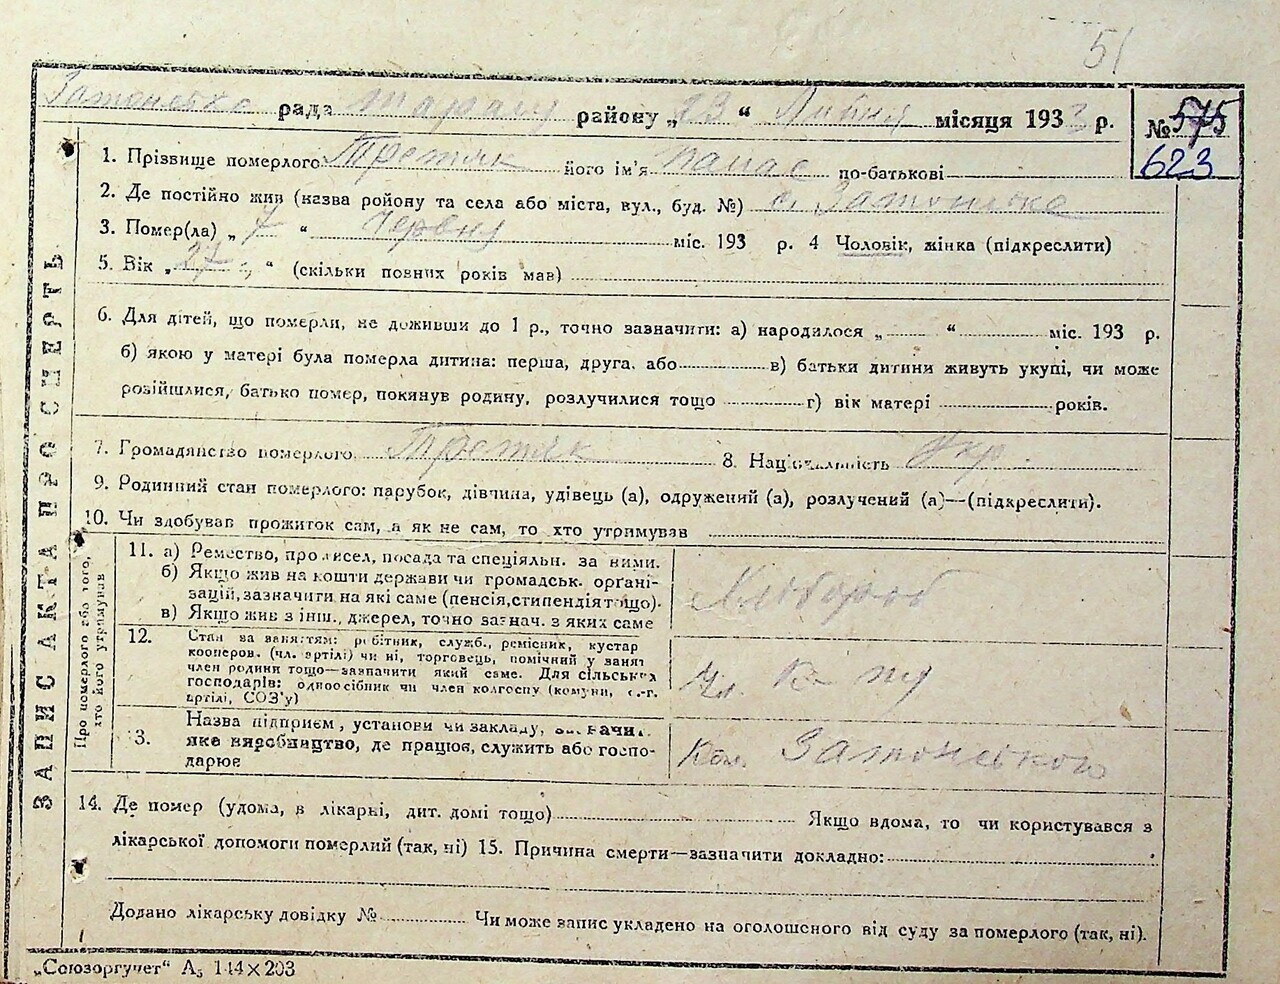 51
рада району „13“ Липня місяця 1933 р.
№ 575
623
1. Прізвище померлого Третяк його ім'я Панас по-батькові
2. Де постійно жив (назва району та села або міста, вул., буд. №) с.
3. Помер(ла) „7“ Червня міс. 193 р. 4 Чоловік, жінка (підкреслити)
5. Вік „27“ (скільки повних років мав)
6. Для дітей, що померли, не доживши до 1 р., точно зазначити: а) народилося „ “ міс. 193 р.
б) якою у матері була померла дитина: перша, друга, або в) батьки дитини живуть укупі, чи може
розійшлися, батько помер, покинув родину, розлучилися тощо г) вік матері років.
7. Громадянство померлого Третяк 8. Національність Укр.
9. Родинний стан померлого: парубок, дівчина, удівець (а), одружений (а), розлучений (а)—(підкреслити).
10. Чи здобував прожиток сам, а як не сам, то хто утримував
ЗАПИС АКТА ПРО СМЕРТЬ
Про померлого або того,
хто його утримував
11. а) Ремество, промисел, посада та спеціяльн. за ними.
б) Якщо жив на кошти держави чи громадськ. орґані-
зацій, зазначити на які саме (пенсія, стипендія тощо).
в) Якщо жив з інш. джерел, точно зазнач. з яких саме
Хлібороб
12. Стан за заняттям: робітник, служб., ремісник, кустар
кооперов. (чл. артілі) чи ні, торговець, помічний у занят
член родини тощо—зазначити який саме. Для сільських
господарів: одноосібник чи член колгоспу (комуни, с.-г.
артілі, СОЗ'у)
Чл.
3. Назва підприєм, установи чи закладу, зазначи
яке виробництво, де працює, служить або госпо-
дарює
Кол. Затонського
14. Де помер (удома, в лікарні, дит. домі тощо) Якщо вдома, то чи користувався з
лікарської допомоги померлий (так, ні) 15. Причина смерти—зазначити докладно:
Додано лікарську довідку № Чи може запис укладено на оголошеного від суду за померлого (так, ні).
„Союзоргучет“ А₅ 144×203